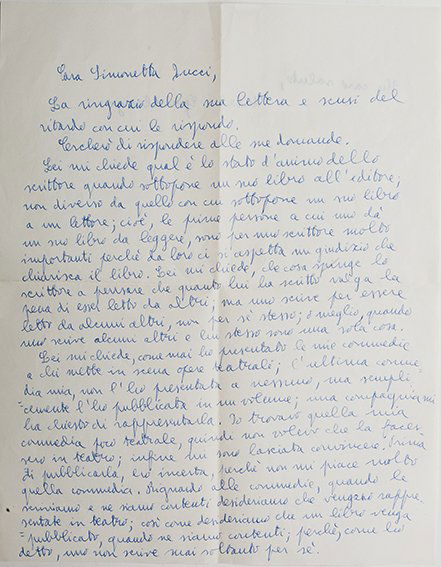 Cara Simonetta Jucci,
La ringrazio della sua lettera e scusi del
ritardo con cui le rispondo.
Cercherò di rispondere alle sue domande.
Lei mi chiede qual è lo stato d'animo dello
scrittore quando sottopone un suo libro all'editore;
non diverso da quello con cui sottopone un suo libro
a un lettore; cioè, le prime persone a cui uno dà
un suo libro da leggere, sono per uno scrittore molto
importanti perché da loro ci si aspetta un giudizio che
chiarisca il libro. Lei mi chiede, che cosa spinge lo
scrittore a pensare che quanto lui ha scritto valga la
pena di esser letto da altri; ma uno scrive per essere
letto da alcuni altri, non per sé stesso; o meglio, quando
uno scrive alcuni altri e lui stesso sono una sola cosa.
Lei mi chiede, come mai ho presentato le mie commedie
a chi mette in scena opere teatrali; l'ultima comme
dia mia, non l'ho presentata a nessuno, ma sempli=
=cemente l'ho pubblicata in un volume; una compagnia mi
ha chiesto di rappresentarla. Io trovavo quella mia
commedia poco teatrale, quindi non volevo che la faces
sero in teatro; infine mi sono lasciata convincere. Prima
di pubblicarla, ero incerta, perché non mi piace molto
quella commedia. Riguardo alle commedie, quando le
scriviamo e ne siamo contenti desideriamo che vengano rappre
sentate in teatro; così come desideriamo che un libro venga
=pubblicato, quando ne siamo contenti; perché, come ho
detto, uno non scrive mai soltanto per sé.